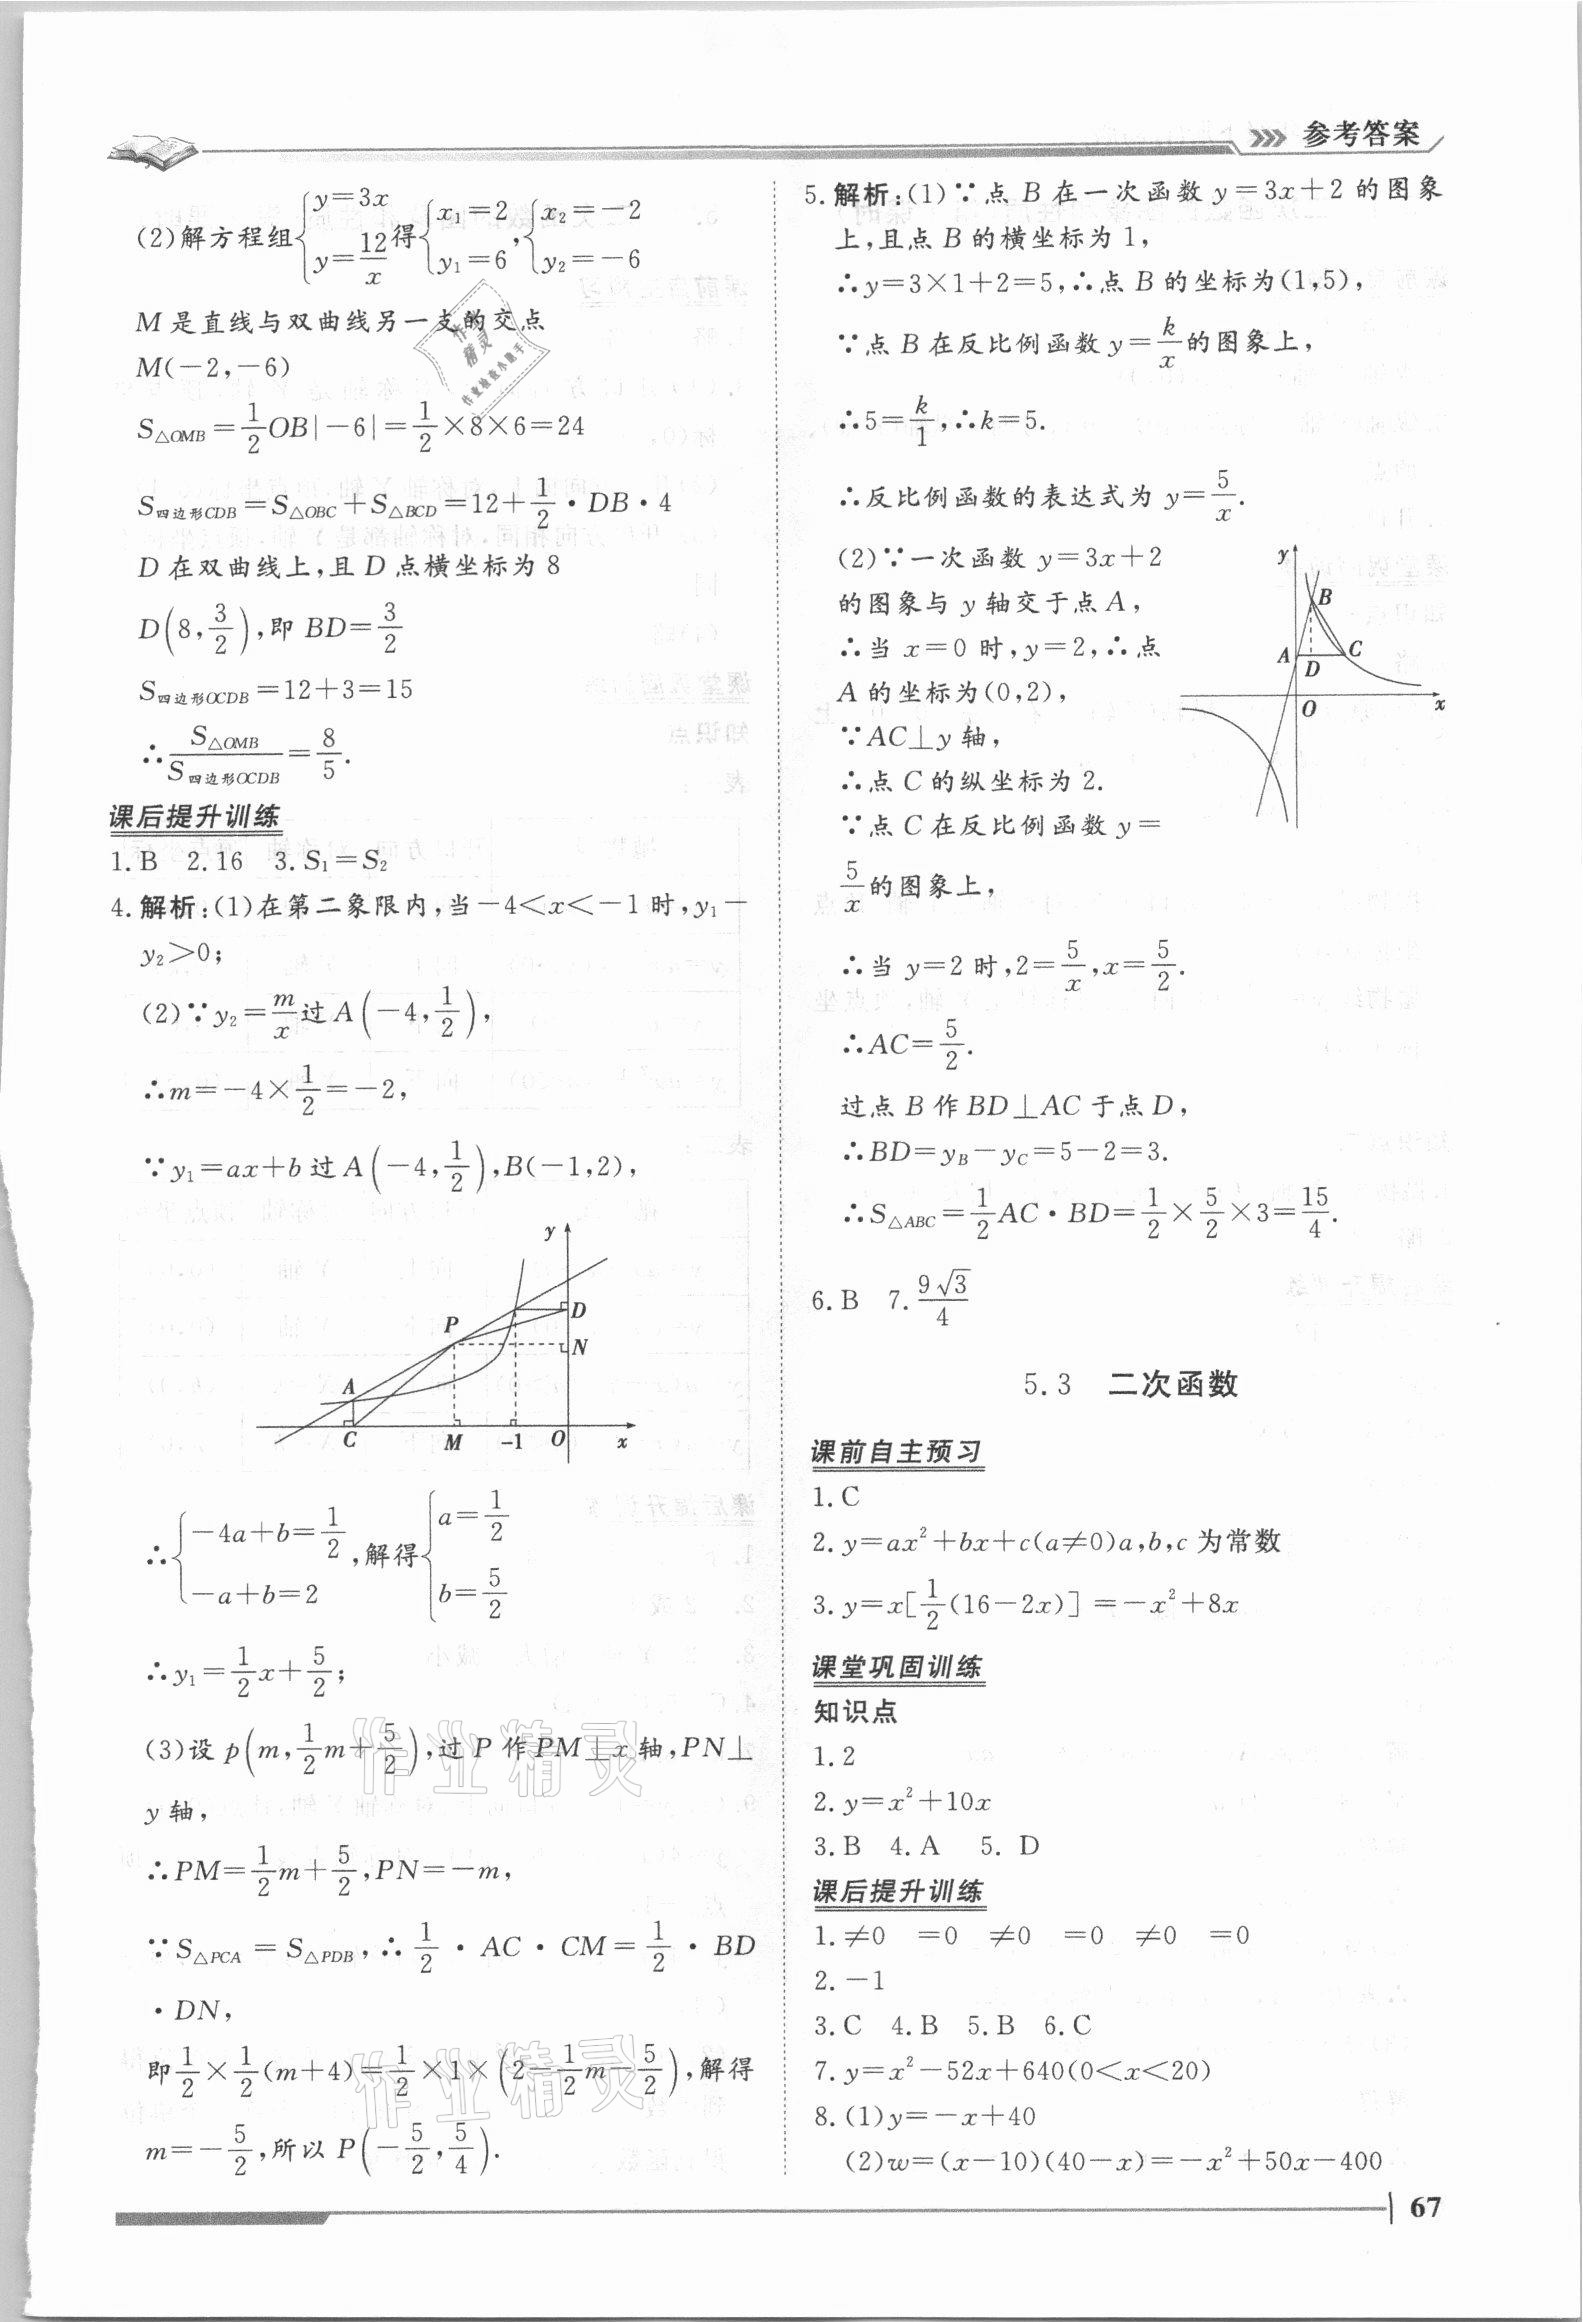 参考答案
(2)解方程组{y=3x, y=12/x 得{x₁=2, y₁=6, {x₂=-2, y₂=-6
M是直线与双曲线另一支的交点
M(-2,-6)
S△OMB=1/2OB|-6|=1/2×8×6=24
S四边形CDB=S△OBC+S△BCD=12+1/2·DB·4
D在双曲线上,且D点横坐标为8
D(8,3/2),即BD=3/2
S四边形OCDB=12+3=15
∴S△OMB/S四边形OCDB=8/5.
课后提升训练
1.B 2.16 3.S₁=S₂
4.解析:(1)在第二象限内,当-4<x<-1时,y₁-
y₂>0;
(2)∵y₂=m/x过A(-4,1/2),
∴m=-4×1/2=-2,
∵y₁=ax+b过A(-4,1/2),B(-1,2),
y
D
P
N
A
C M -1 O x
∴{-4a+b=1/2, -a+b=2,解得{a=1/2, b=5/2
∴y₁=1/2x+5/2;
(3)设p(m,1/2m+5/2),过P作PM⊥x轴,PN⊥
y轴,
∴PM=1/2m+5/2,PN=-m,
∵S△PCA=S△PDB,∴1/2·AC·CM=1/2·BD
·DN,
即1/2×1/2(m+4)=1/2×1×(2-1/2m-5/2),解得
m=-5/2,所以P(-5/2,5/4).
5.解析:(1)∵点B在一次函数y=3x+2的图象
上,且点B的横坐标为1,
∴y=3×1+2=5,∴点B的坐标为(1,5),
∵点B在反比例函数y=k/x的图象上,
∴5=k/1,∴k=5.
∴反比例函数的表达式为y=5/x.
(2)∵一次函数y=3x+2
的图象与y轴交于点A,
∴当x=0时,y=2,∴点
A的坐标为(0,2),
∵AC⊥y轴,
∴点C的纵坐标为2.
∵点C在反比例函数y=
5/x的图象上,
y
B
A C
D
O x
∴当y=2时,2=5/x,x=5/2.
∴AC=5/2.
过点B作BD⊥AC于点D,
∴BD=yB-yC=5-2=3.
∴S△ABC=1/2AC·BD=1/2×5/2×3=15/4.
6.B 7.9√3/4
5.3 二次函数
课前自主预习
1.C
2.y=ax²+bx+c(a≠0)a,b,c为常数
3.y=x[1/2(16-2x)]=-x²+8x
课堂巩固训练
知识点
1.2
2.y=x²+10x
3.B 4.A 5. D
课后提升训练
1.≠0 =0 ≠0 =0 ≠0 =0
2.-1
3.C 4.B 5.B 6.C
7.y=x²-52x+640(0<x<20)
8.(1)y=-x+40
(2)w=(x-10)(40-x)=-x²+50x-400
67
作业精灵
作业精灵